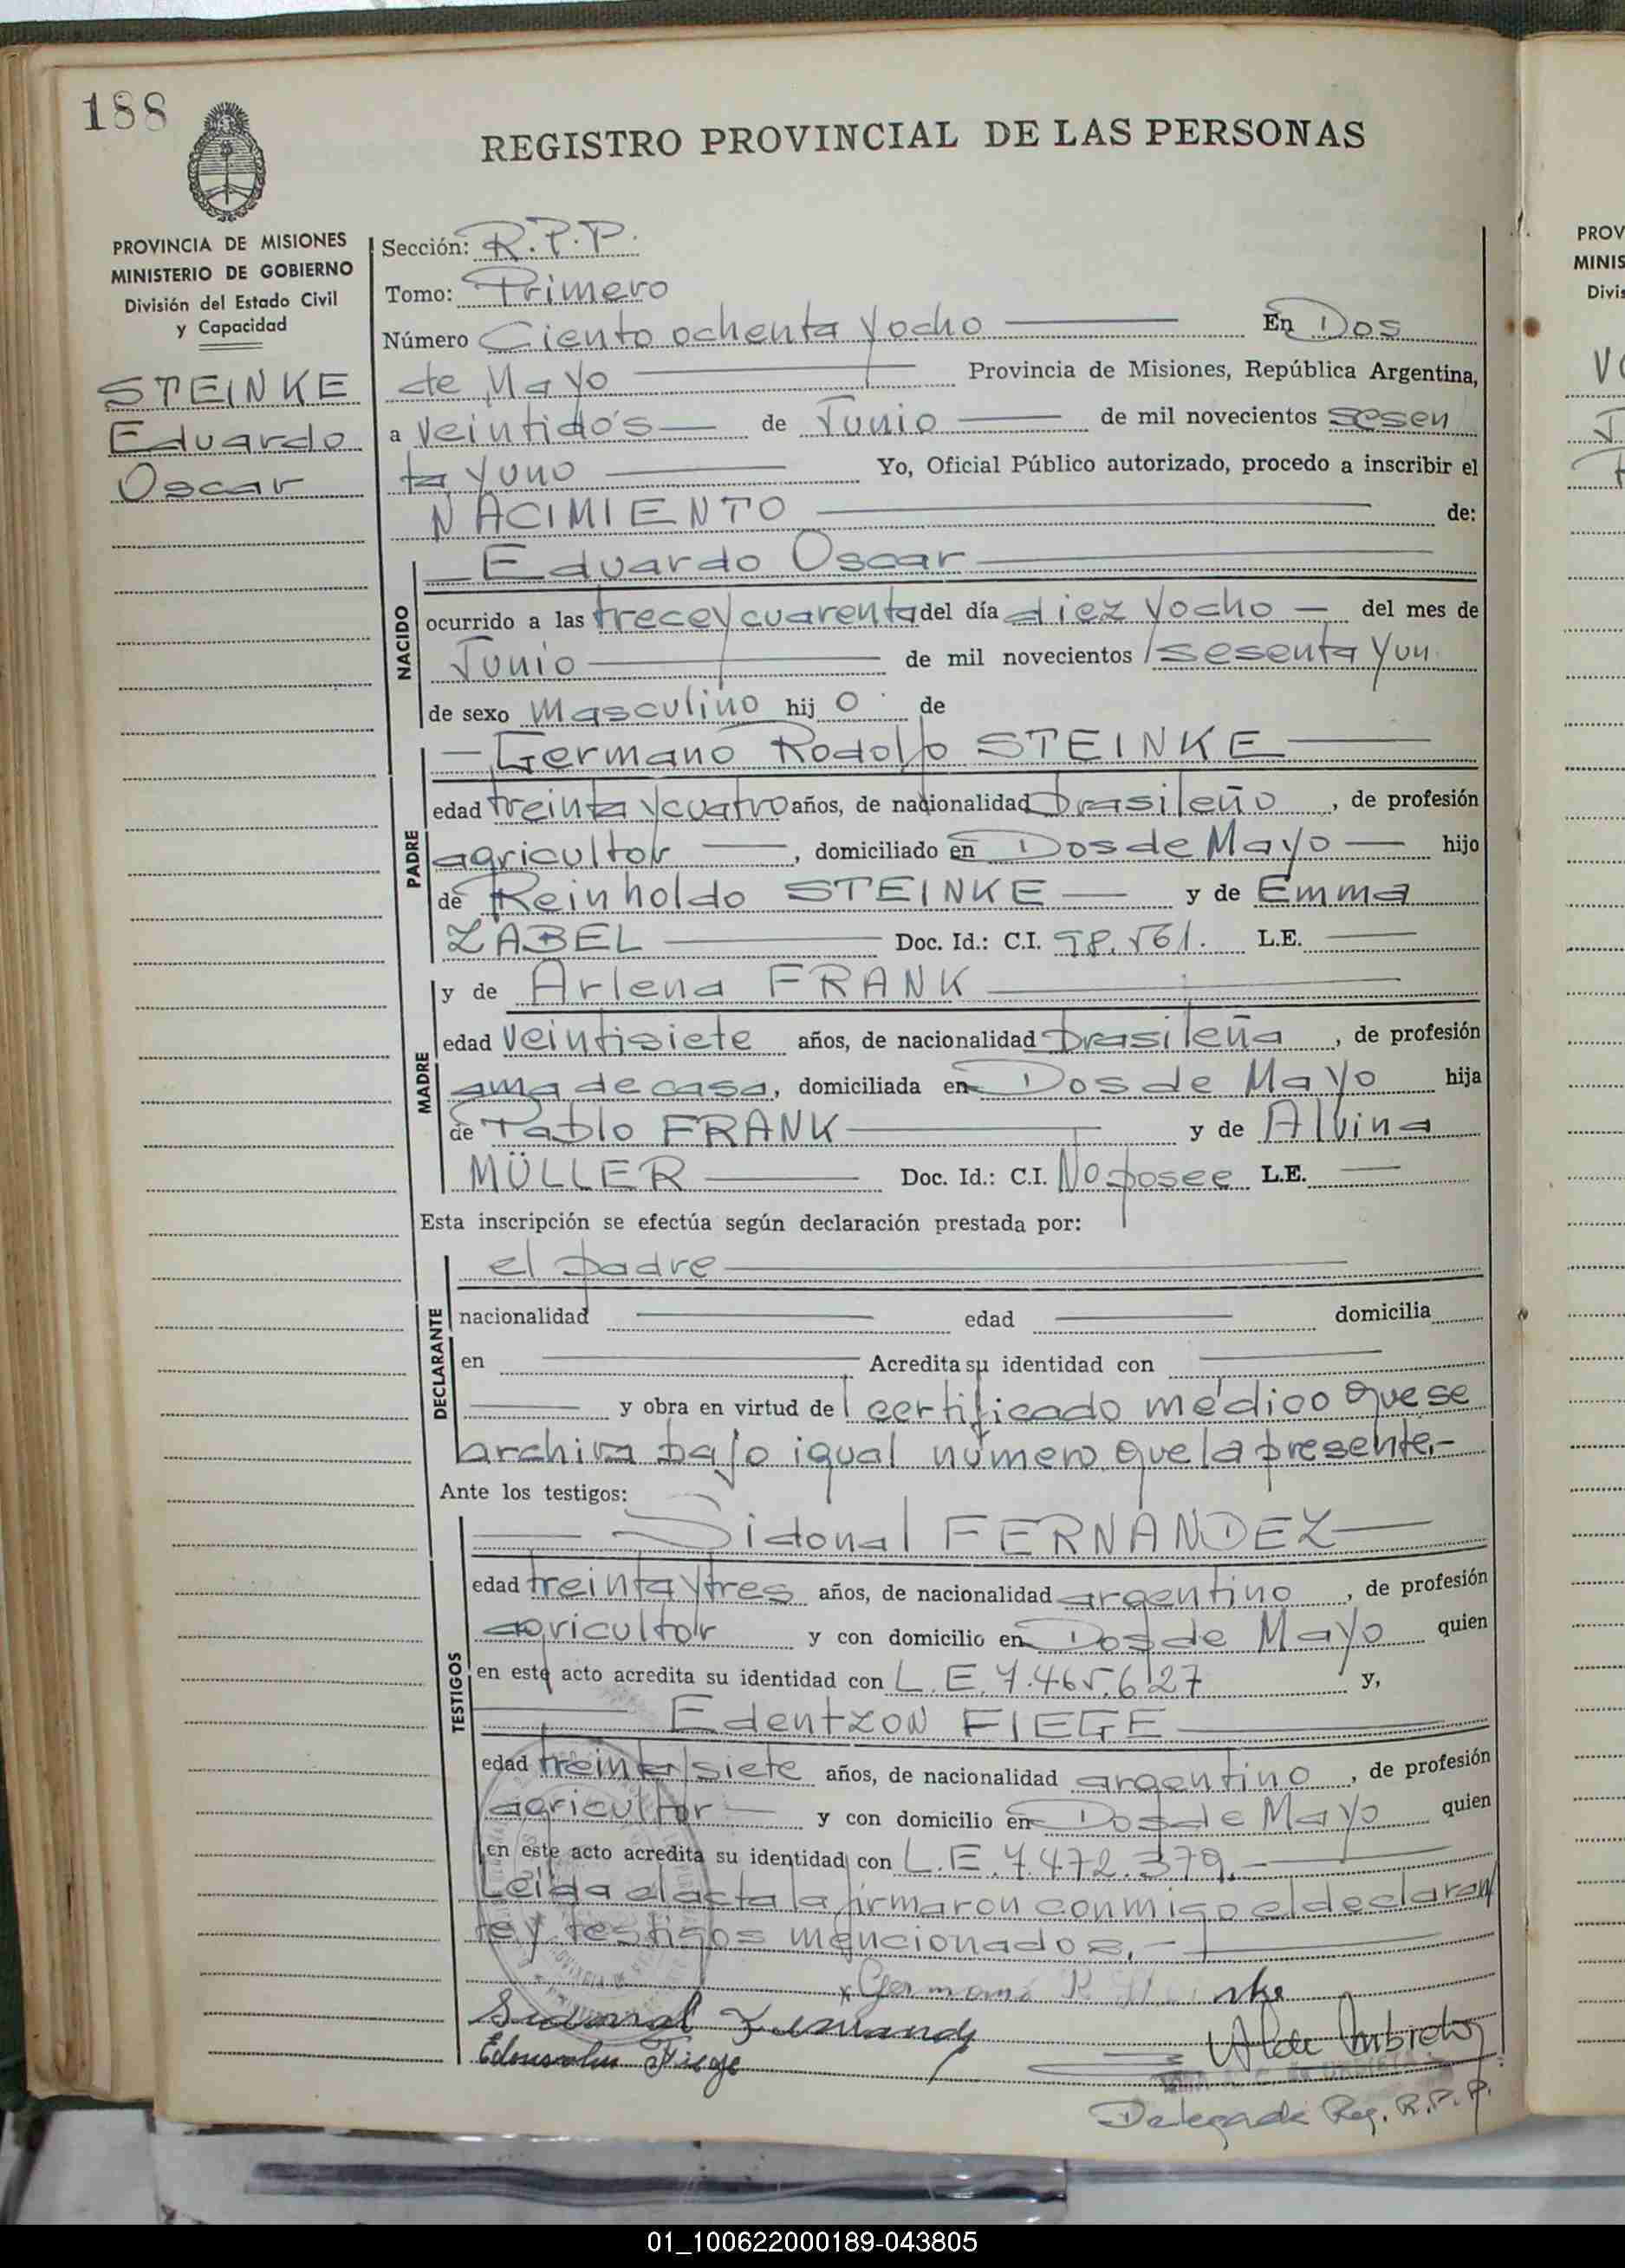 188
REGISTRO PROVINCIAL DE LAS PERSONAS
PROVINCIA DE MISIONES
MINISTERIO DE GOBIERNO
División del Estado Civil
y Capacidad
STEINKE
Eduardo
Oscar
Sección: R.P.P.
Tomo: Primero
Número Ciento ochenta y ocho En Dos
de Mayo Provincia de Misiones, República Argentina,
a veintidós de Junio de mil novecientos sesen
ta y uno Yo, Oficial Público autorizado, procedo a inscribir el
NACIMIENTO de:
NACIDO
Eduardo Oscar
ocurrido a las trece y cuarenta del día diez y ocho del mes de
Junio de mil novecientos sesenta y un
de sexo Masculino hij o de
PADRE
Germano Rodolfo STEINKE
edad treinta y cuatro años, de nacionalidad brasileño, de profesión
agricultor, domiciliado en Dos de Mayo hijo
de Reinholdo STEINKE y de Emma
ZABEL Doc. Id.: C.I. 98.561. L.E.
MADRE
y de Arlena FRANK
edad veintisiete años, de nacionalidad brasileña, de profesión
ama de casa, domiciliada en Dos de Mayo hija
de Pablo FRANK y de Alvina
MÜLLER Doc. Id.: C.I. No posee L.E.
Esta inscripción se efectúa según declaración prestada por:
DECLARANTE
el padre
nacionalidad edad domicilia
en Acredita su identidad con
y obra en virtud del certificado médico que se
archiva bajo igual número que la presente.-
Ante los testigos:
TESTIGOS
Sidonal FERNANDEZ
edad treinta y tres años, de nacionalidad argentino, de profesión
agricultor y con domicilio en Dos de Mayo quien
en este acto acredita su identidad con L.E. 7.465.627 y,
Edentzon FIEGE
edad treinta y siete años, de nacionalidad argentino, de profesión
agricultor y con domicilio en Dos de Mayo quien
en este acto acredita su identidad con L.E. 7.472.379.-
Leída el acta la firmaron conmigo el declaran
te y testigos mencionados.-
x Germano R. Steinke
Fiege
Delegada Reg. R.P.P.
PROV
MINIS
Divis
01_100622000189-043805